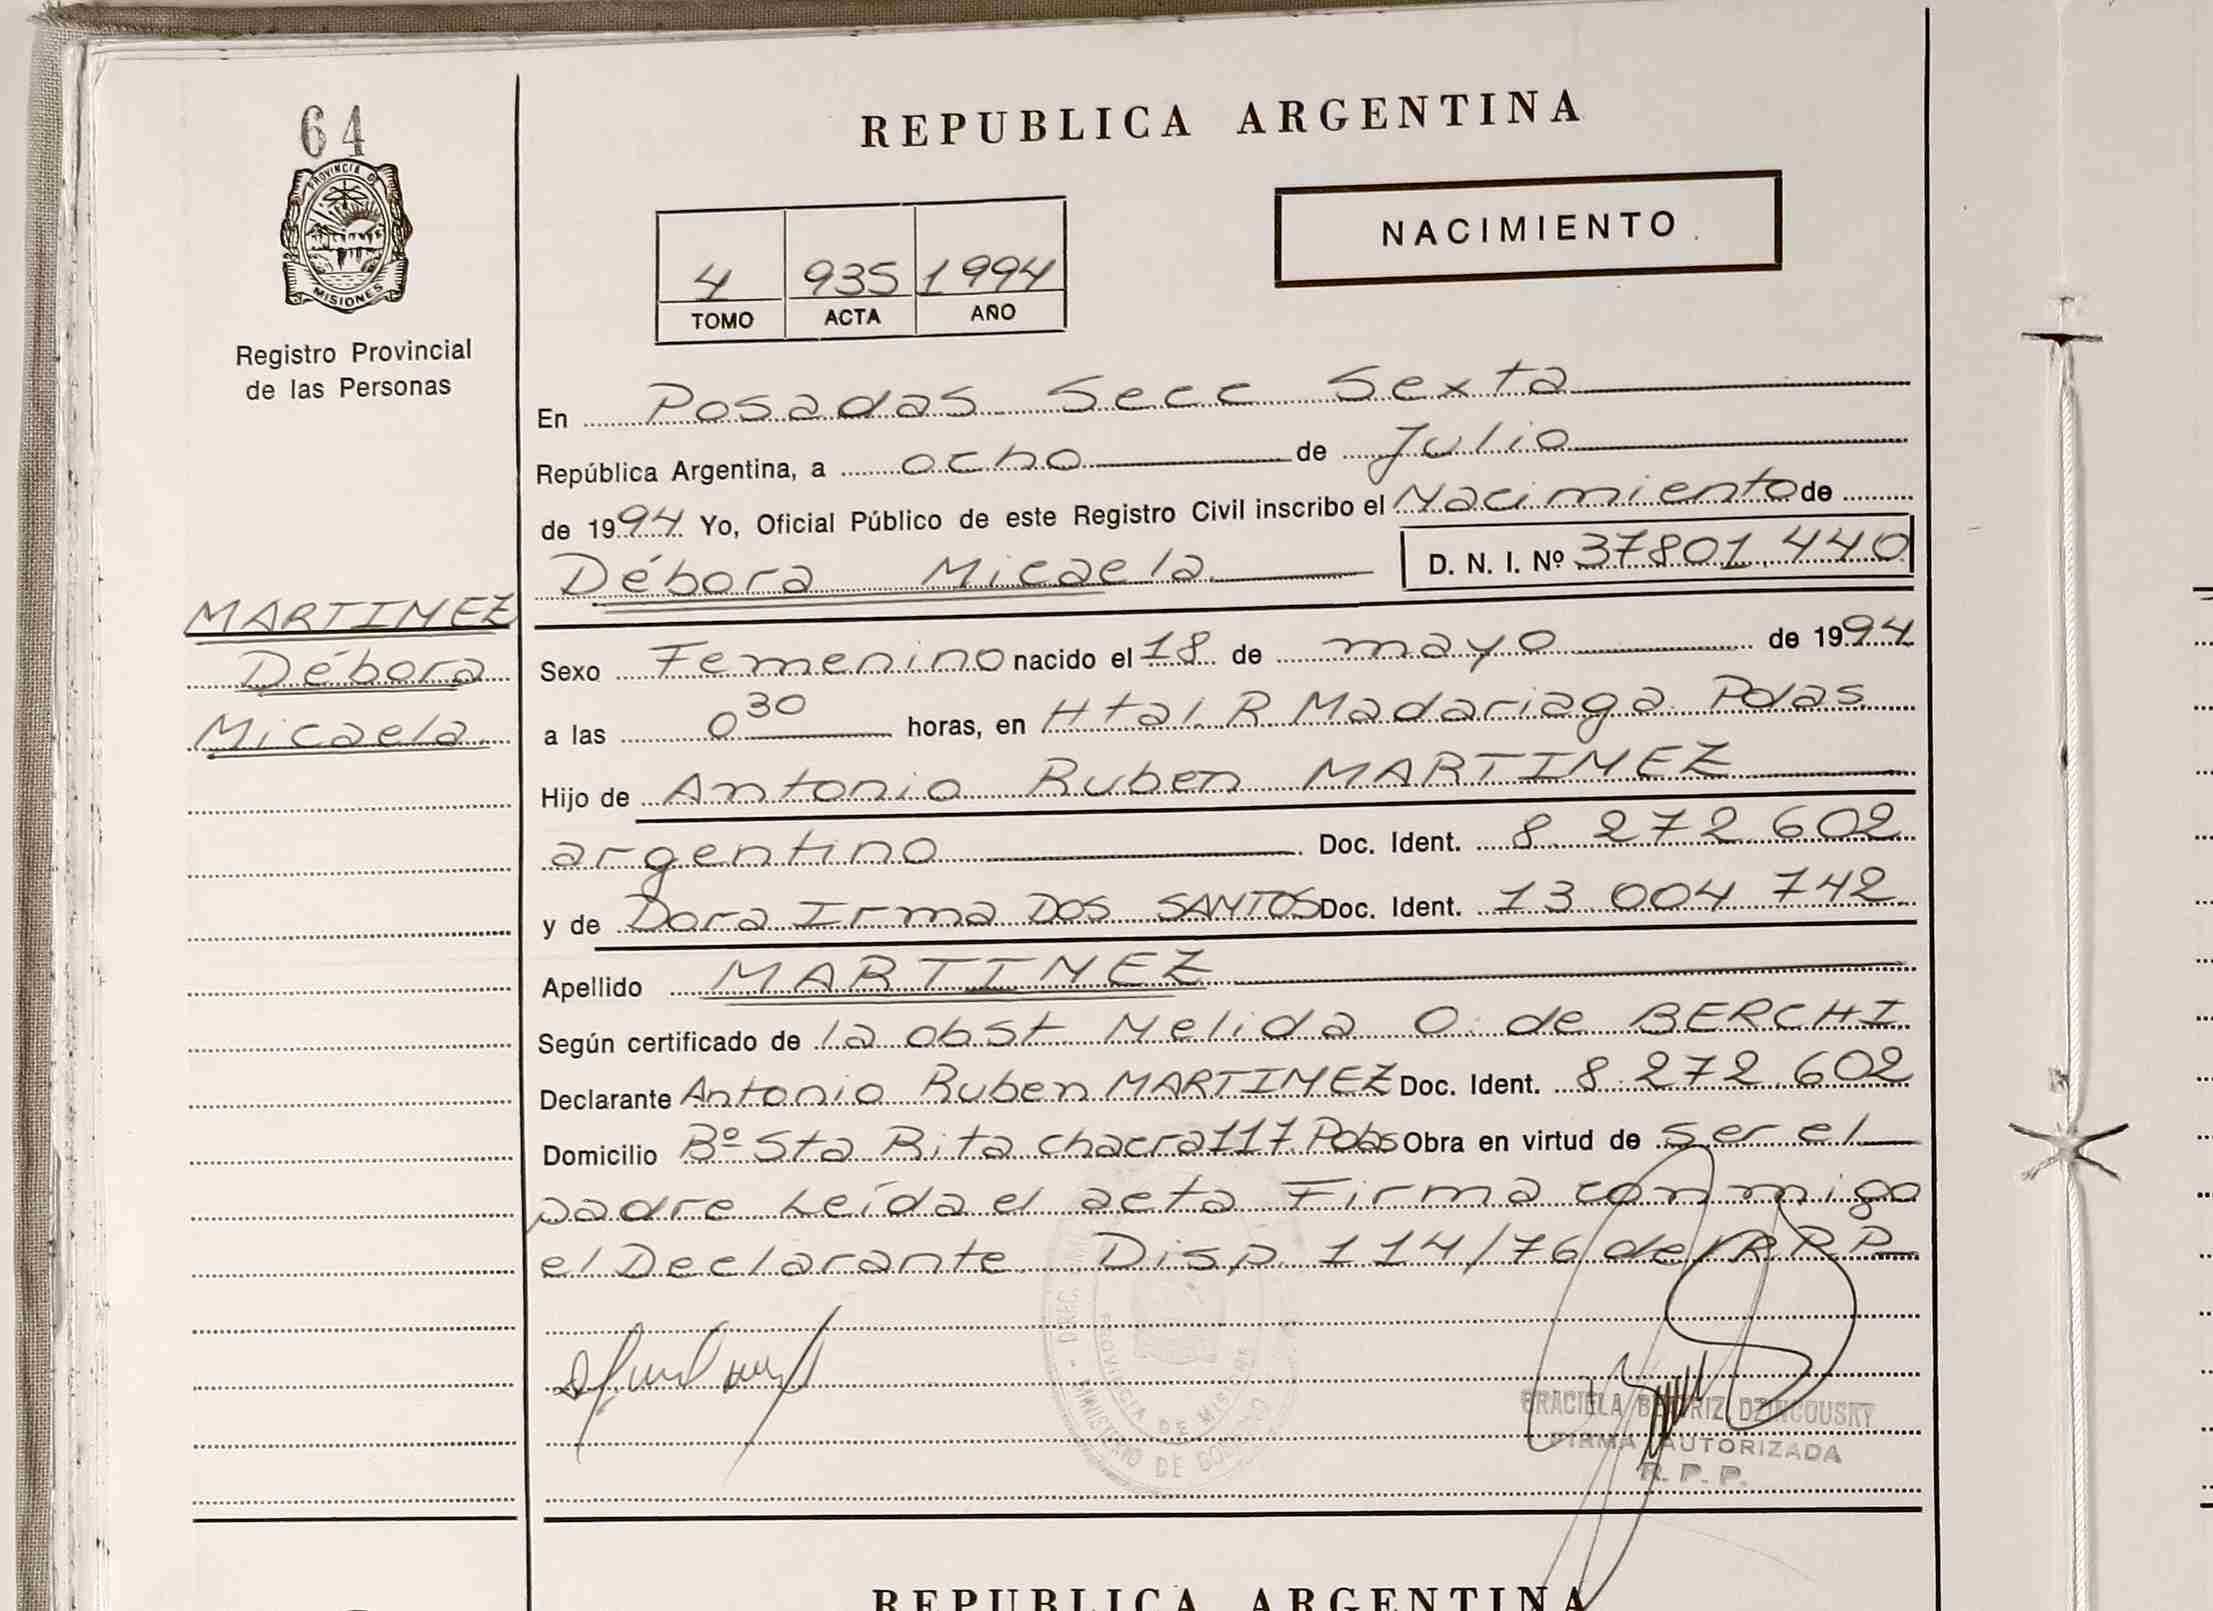 64
PROVINCIA DE
MISIONES
Registro Provincial
de las Personas
MARTINEZ
Débora
Micaela
REPUBLICA ARGENTINA
NACIMIENTO
4 935 1994
TOMO ACTA AÑO
En Posadas Secc Sexta
República Argentina, a ocho de Julio
de 1994 Yo, Oficial Público de este Registro Civil inscribo el Nacimiento de
Débora Micaela D. N. I. Nº 37801 440
Sexo Femenino nacido el 18 de mayo de 1994
a las 0 30 horas, en Htal R Madariaga Pdas
Hijo de Antonio Ruben MARTINEZ
argentino Doc. Ident. 8 272 602
y de Dora Irma DOS SANTOS Doc. Ident. 13 004 742
Apellido MARTINEZ
Según certificado de la obst Nelida O. de BERCHI
Declarante Antonio Ruben MARTINEZ Doc. Ident. 8 272 602
Domicilio Bº Sta Rita chacra 117 Pdas Obra en virtud de ser el
padre Leída el acta Firma conmigo
el Declarante Disp. 114/76 del R R P
PROVINCIA DE MISIONES
MINISTERIO DE GOBIERNO
GRACIELA BEATRIZ DZINCOUSKY
FIRMA AUTORIZADA
R. P. P.
REPUBLICA ARGENTINA